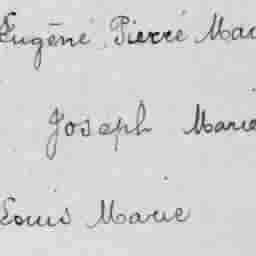 Eugéné Pierré Mar
Joseph Marie
Louis Marie